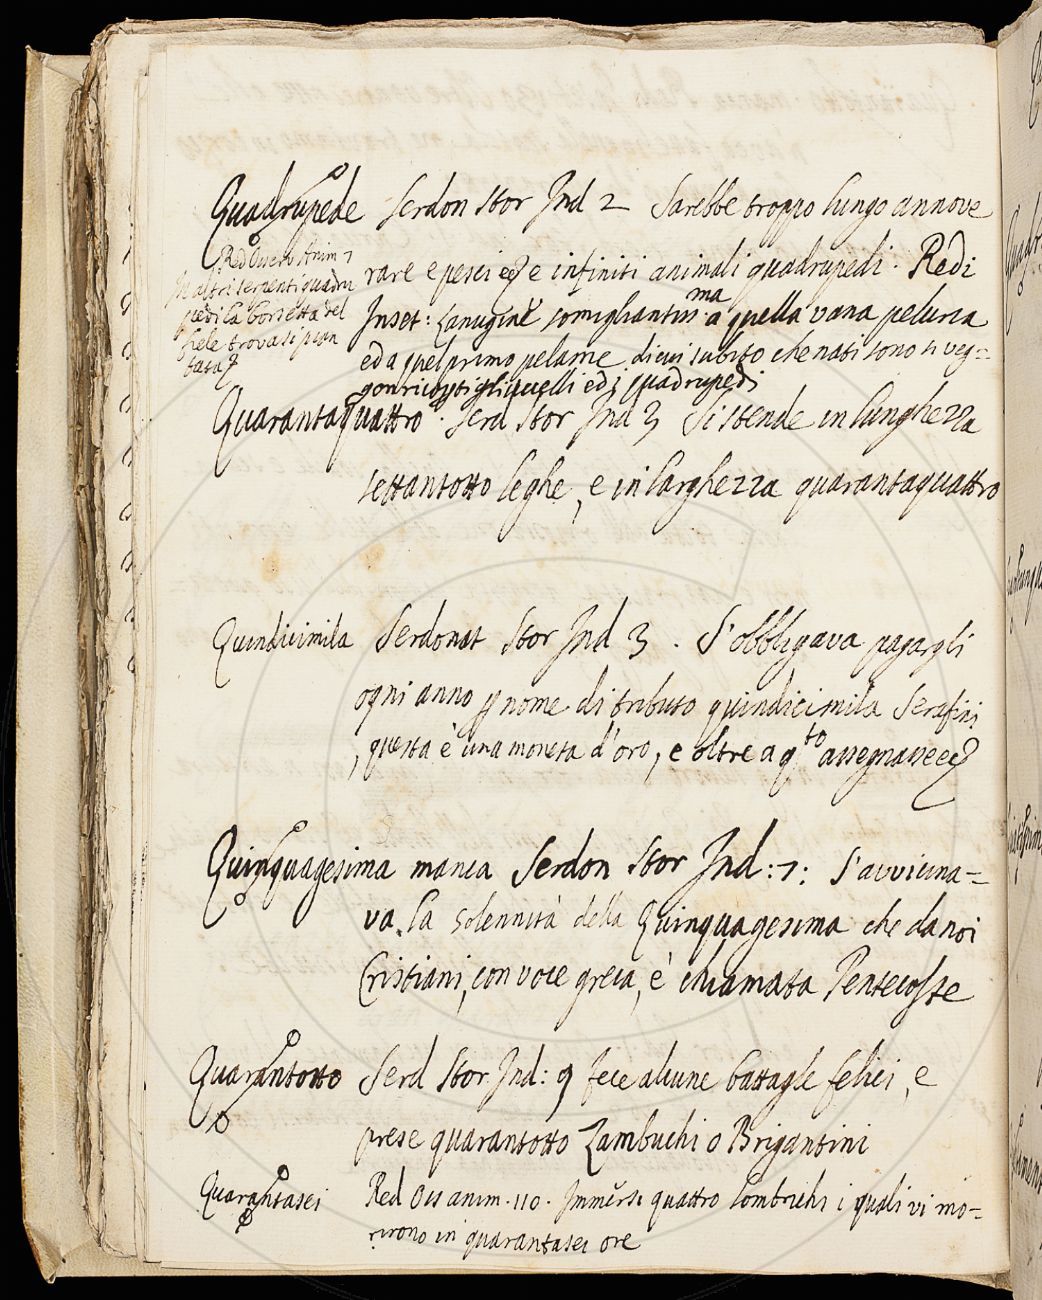 Quadrupede Serdon Stor Ind 2 Sarebbe troppo lungo annove
rare e pesci ec e infiniti animali quadrupedi. Redi
Inset: Lanugine somigliantiss.ma a quella vana peluria
ed a quel primo pelame di cui subito che nati sono si veg=
gon ricoperti gli uccelli ed i quadrupedi
Red Osserv Anim 7
In altri serpenti quadru
pedi la borsetta del
fiele trovasi pian
tata ec
Quarantaquattro. Serd Stor Ind 3 Si stende in lunghezza
settantotto leghe, e in larghezza quarantaquattro
Quindicimila Serdonat Stor Ind 3. S'obbligava pagargli
ogni anno p nome di tributo quindicimila Serafini
, questa è una moneta d'oro, e oltre a q.to assegnasse ec
Quinquagesima manca Serdon Stor Ind: 7: S'avvicina=
va la solennità della Quinquagesima che da noi
Cristiani, con voce greca, è chiamata Pentecoste
Quarantotto Serd Stor Ind: 9 fece alcune battaglie felici, e
prese quarantotto Zambuchi o Brigantini
Quarantasei Red Oss anim. 110. Immersi quattro lombrichi i quali vi mo=
rirono in quarantasei ore